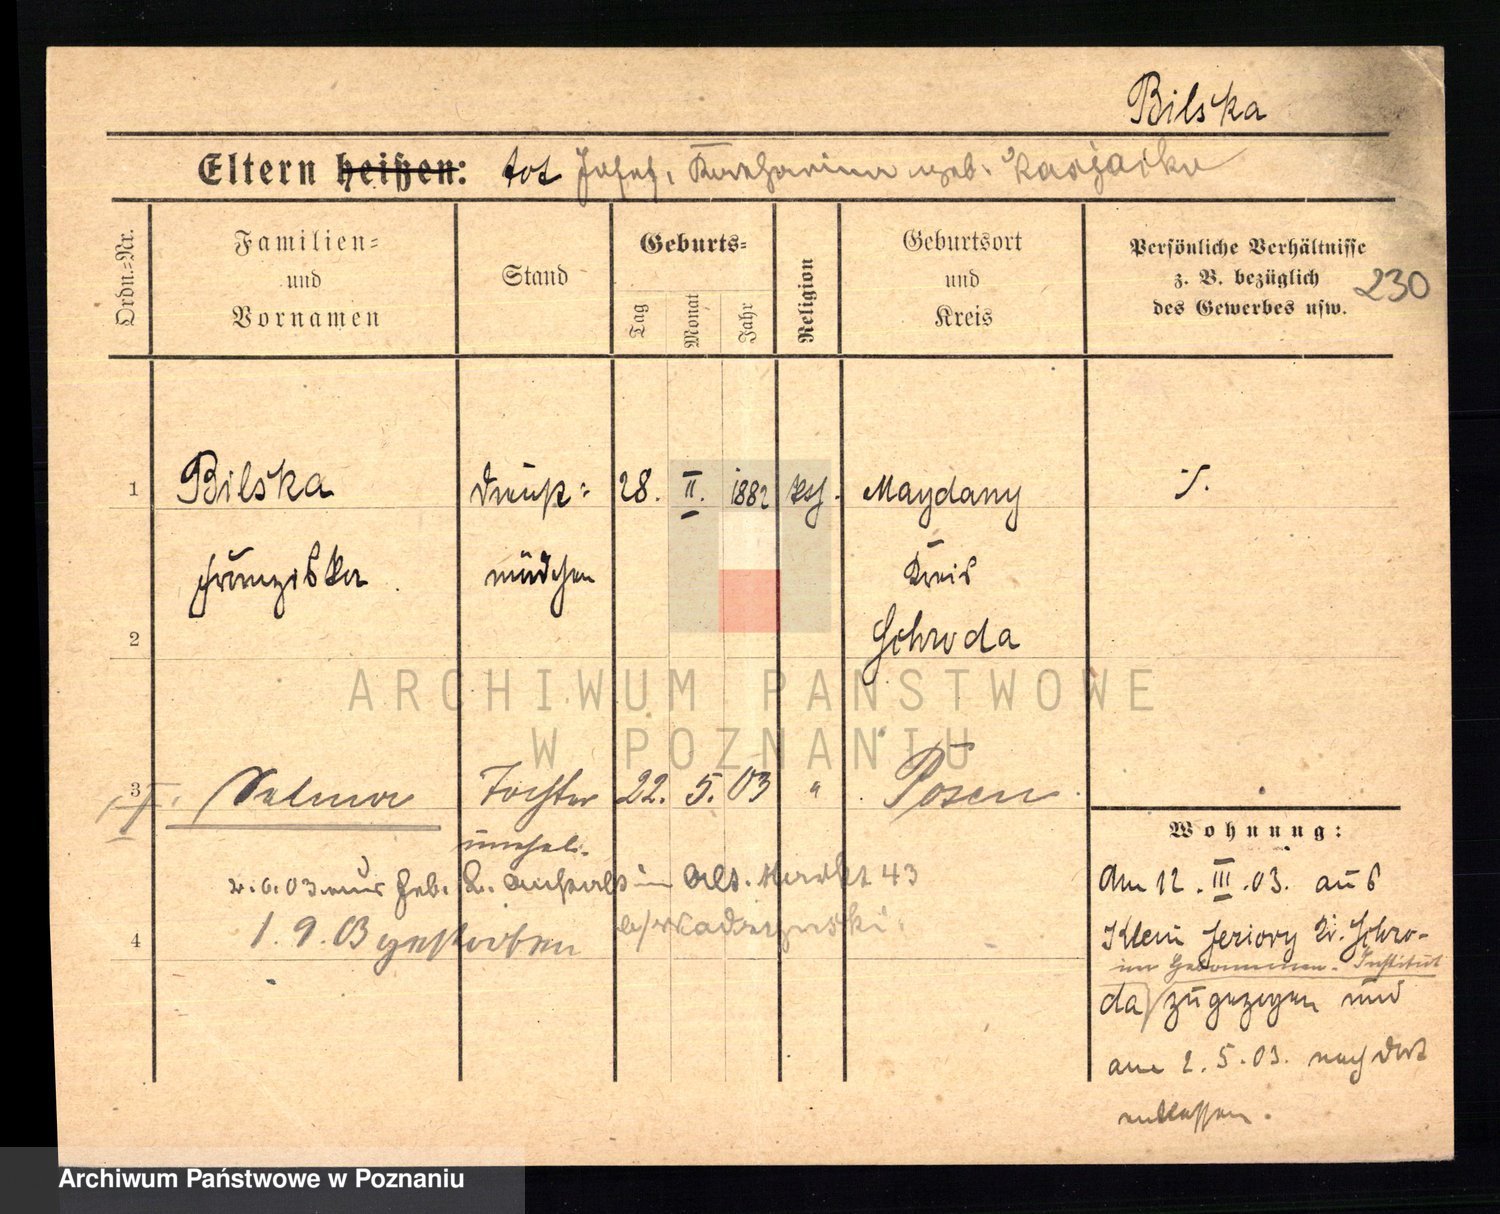 Bilska
Eltern heißen: tot Josef, Katharina geb.
Ordn.=Nr.
Familien=
und
Vornamen
Stand
Geburts=
Tag
Monat
Jahr
Religion
Geburtsort
und
Kreis
Persönliche Verhältnisse
z. B. bezüglich
des Gewerbes usw.
230
1 Bilska Dienst= 28. II. 1882 kth. Maydany
Franziska mädchen Kreis
2 Schroda
3 Tochter 22. 5. 03 " Posen
unehel.
2. 6. 03 aus Geb. Anstalt in Alt. Markt 43
4 1. 9. 03 gestorben
Wohnung:
Am 12. III. 03. aus
Klein Jeziory Kr. Schro-
im Hebammen-Institut
da zugezogen und
am 2. 5. 03. nach dort
entlassen.
ARCHIWUM PAŃSTWOWE
W POZNANIU
Archiwum Państwowe w Poznaniu